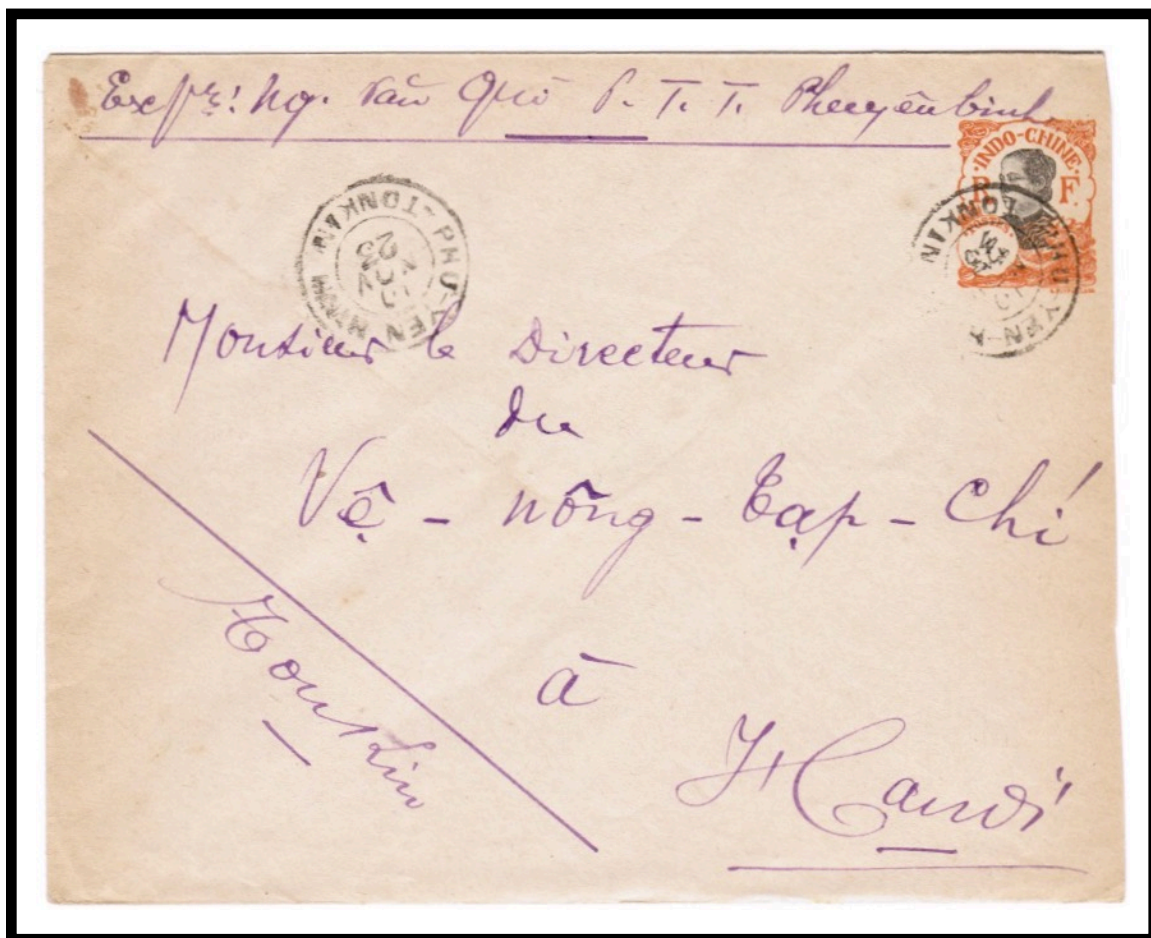 Expr: Ng. Văn Quì P. T. T. Phuyênbinh
INDO-CHINE
R F
PHU-YEN-BINH TONKIN
PHU-YEN- TONKIN
Monsieur le Directeur
du
Vệ - nông - Tạp - Chí
à
Hanoi
Tonkin